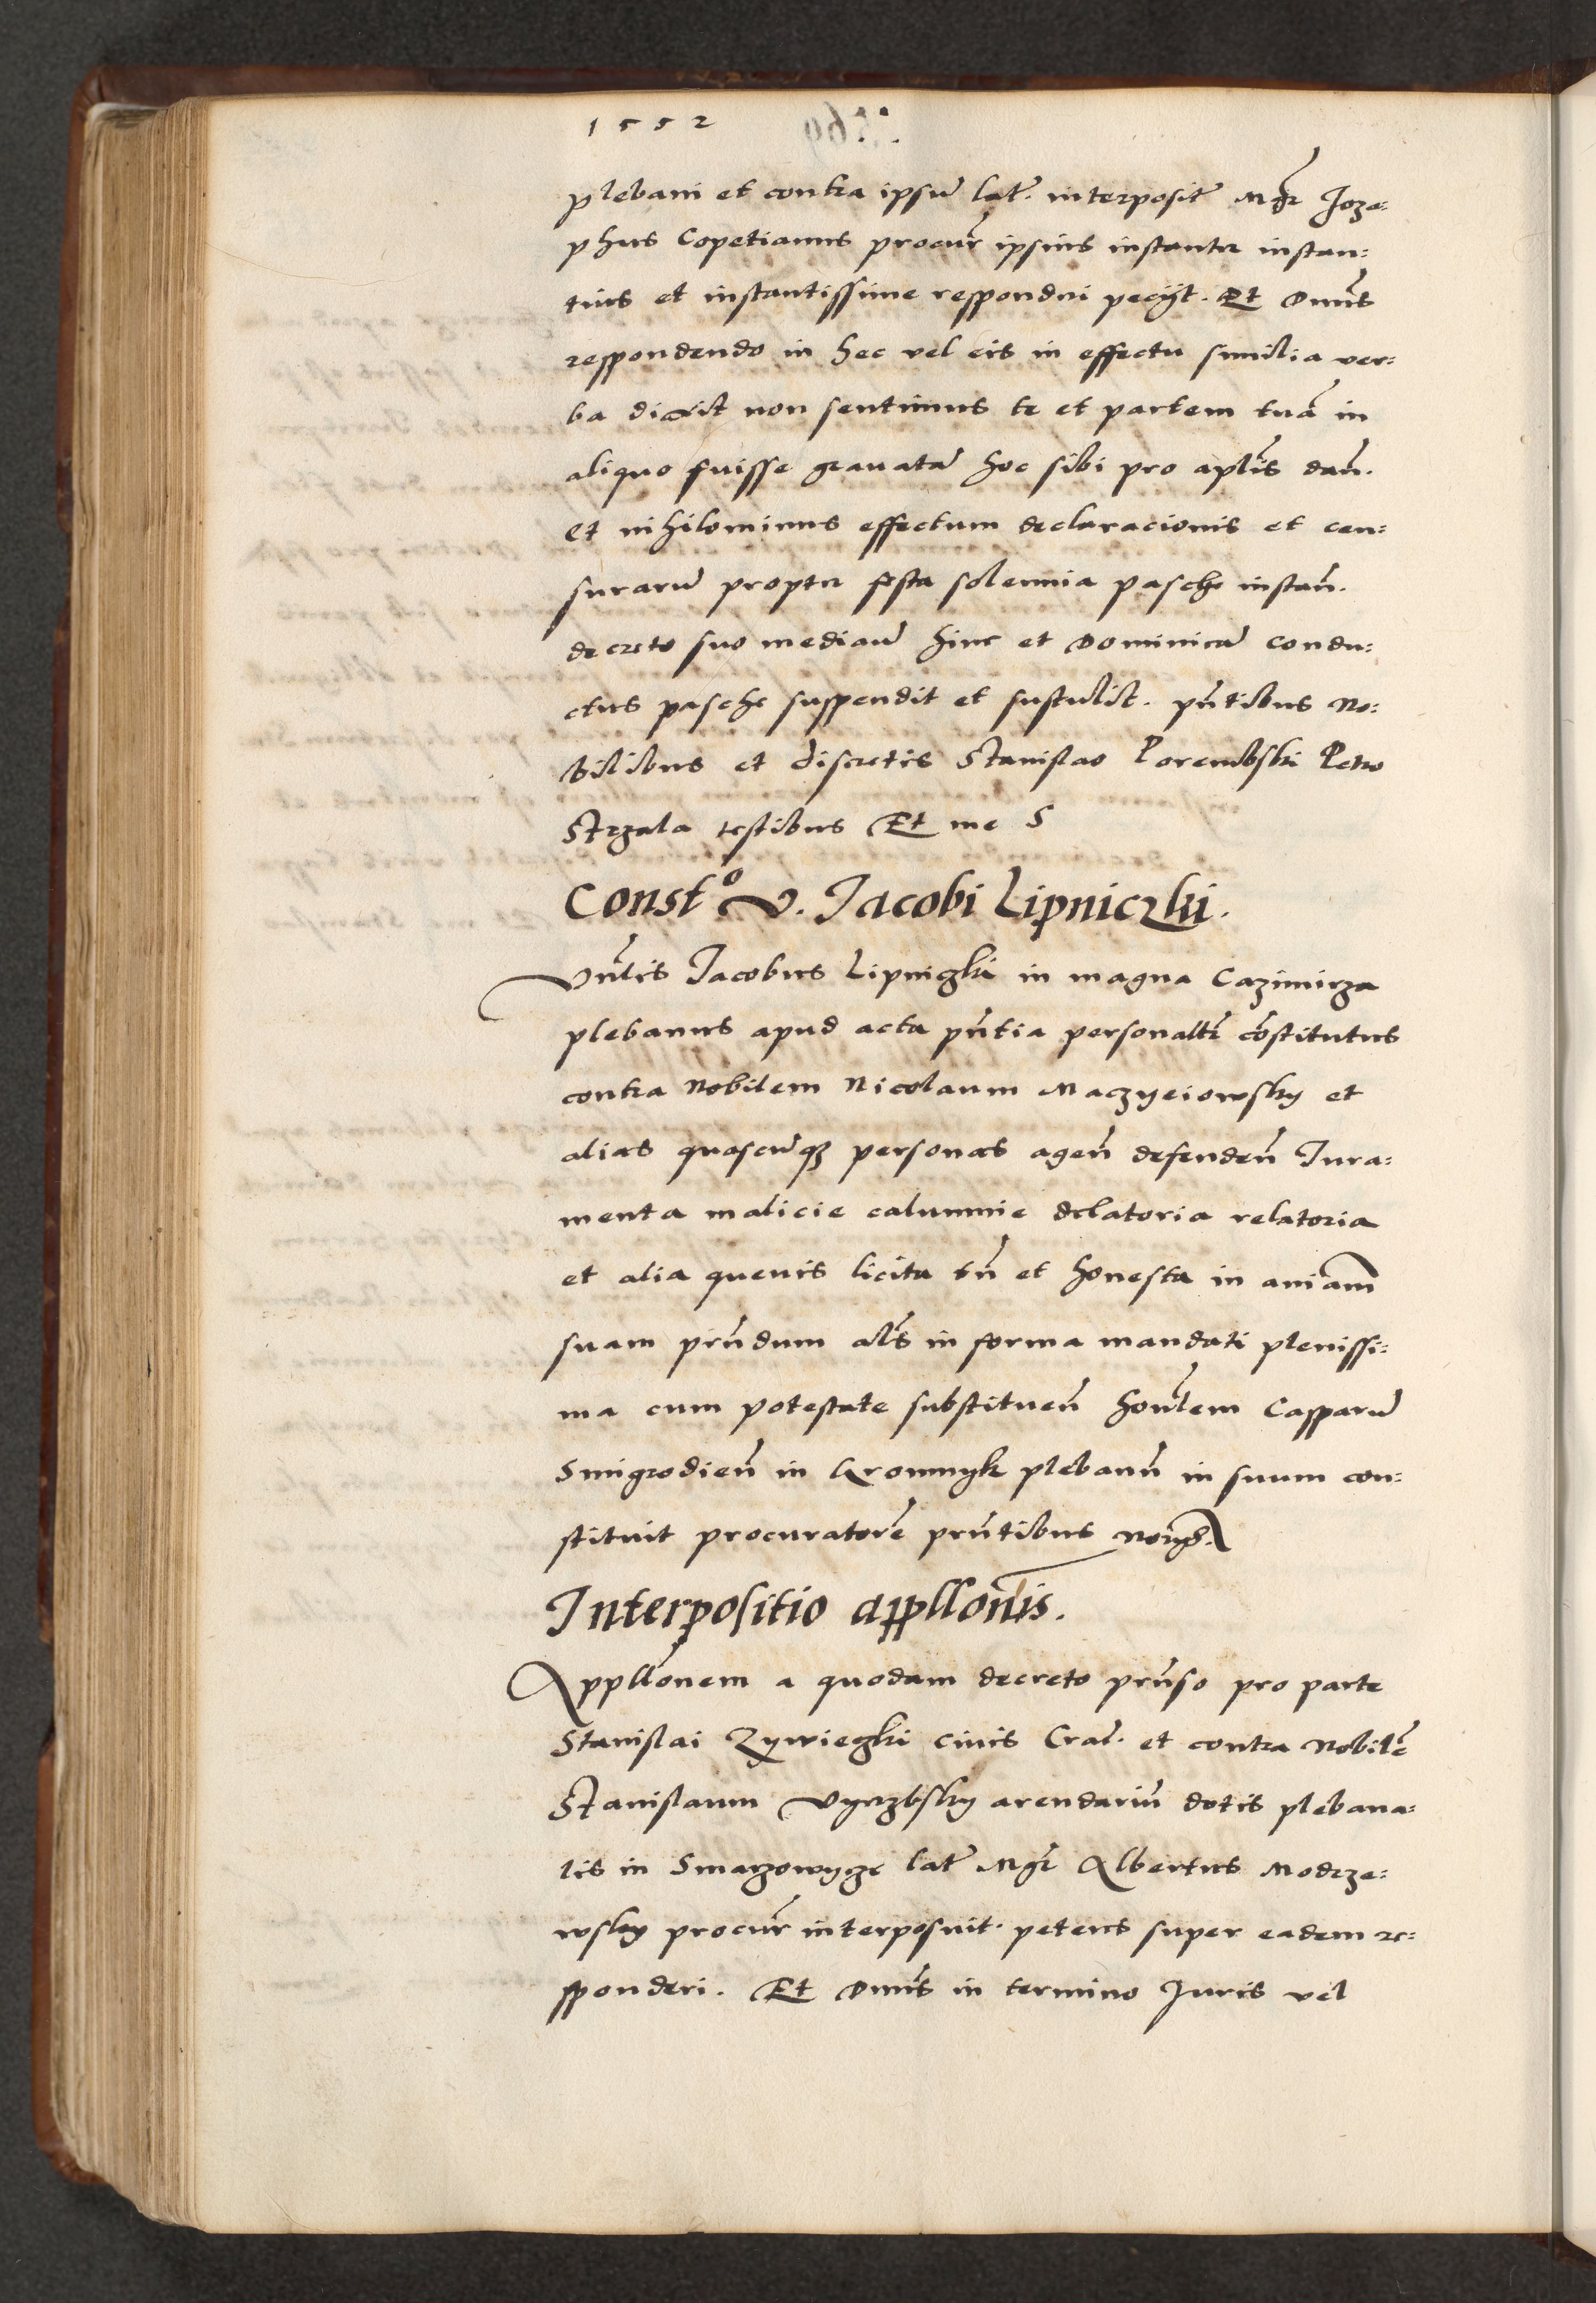 1552
plebani et contra ipsū lat̄. interposit̄ Mgr̄ Joze:
phus Copetianus procur̄ ipsius instanter instan:
tius et instantissime responderi pecijt. Et Dnūs
respondendo in hec vel eis in effectu similia ver:
ba dixit non sentimus te et partem tuā in
aliquo fuisse gravatā hoc sibi pro aplīs dan̄.
et nihilominus effectum declaracionis et cen:
surarū propter festa solennia pasche instan̄.
decreto suo mediaū hinc et Dominicā condu:
ctus pasche suspendit et sustulit. pn̄tibus No:
bilibus et discretis Stanislao Porembski Petro
Strzala testibus Et me S
Constᵒ v. Jacobi Lipniczki.
Vn̄lis Jacobus Lipniczki in magna Cazimirza
plebanus apud acta pn̄tia personalit̄ cōstitutus
contra Nobilem Nicolaum Maczyeiowsky et
alias quascūqz personas agen̄ defenden̄ Jura:
menta malicie calumnie delatoria relatoria
et alia quevis licita tn̄ et honesta in aniam̄
suam prn̄dum al̄s in forma mandati plenissi:
ma cum potestate substituen̄ honl̄em Casparū
Smigrodien̄ in Gromnyk plebanū in suum con:
stituit procuratorē prn̄tibus
Interpositio appll̄onis.
Appll̄onem a quodam decreto prn̄so pro parte
Stanislai Zywieczki civis Crac̄. et contra Nobilē
Stanislaum Vyerzbsky arendariū dotis plebana:
lis in Smarzowycze lat̄ Mgr̄ Albertus Modrze:
wsky procur̄ interposuit. petens super eadem re:
sponderi. Et Dnūs in termino Juris vel